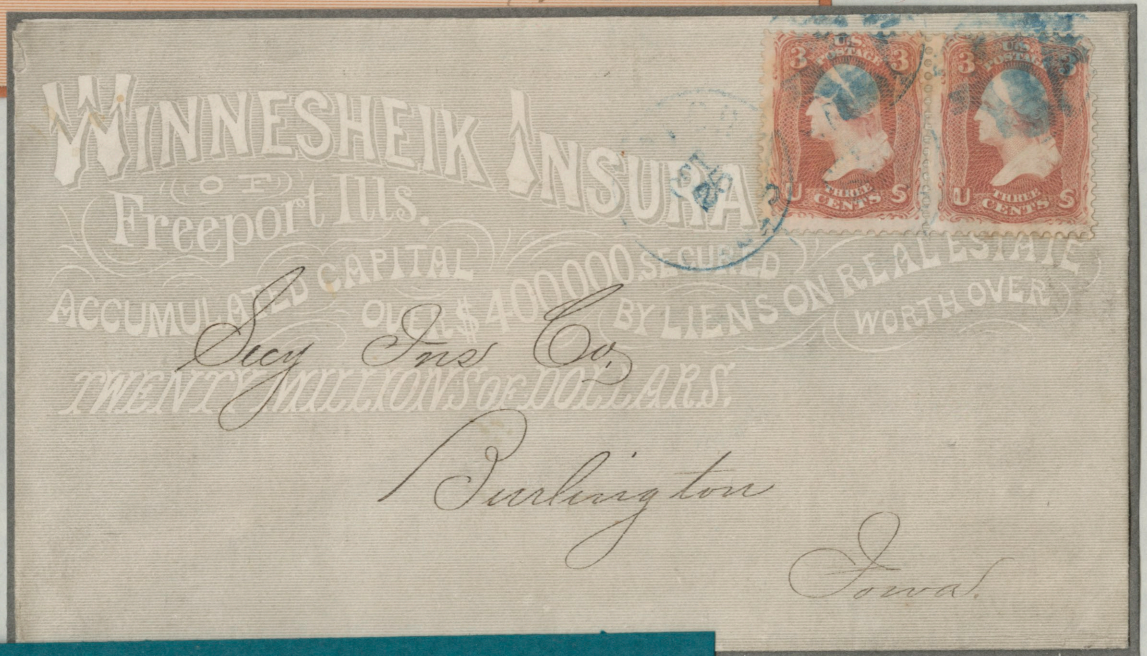 WINNESHEIK INSURA
OF
Freeport Ills.
ACCUMULATED CAPITAL OVER $400,000 SECURED BY LIENS ON REAL ESTATE WORTH OVER
TWENTY MILLIONS OF DOLLARS.
3 U.S. POSTAGE 3
U THREE CENTS S
3 U.S. POSTAGE 3
U THREE CENTS S
Secy Ins Co.
Burlington
Iowa.